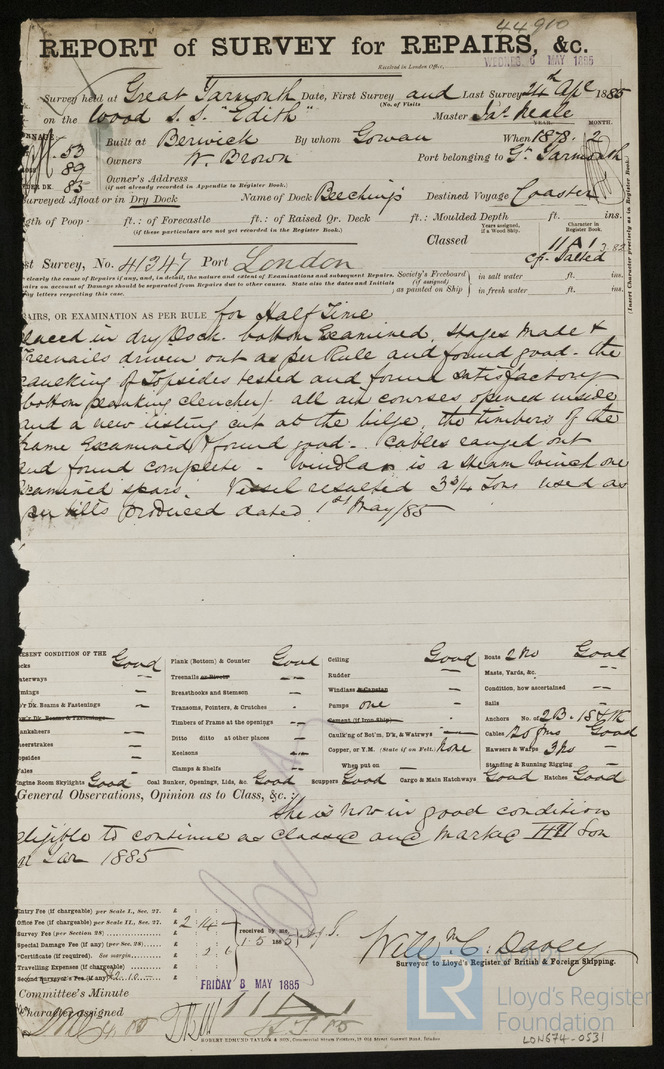 44910
REPORT of SURVEY for REPAIRS, &c.
Received in London Office, WEDNES 6 MAY 1885
Survey held at Great Yarmouth Date, First Survey and Last Survey 24th Apl 1885
(No. of Visits
on the Wood S.S. "Edith" Master Jas Neale
YEAR. MONTH.
53 Built at Berwick By whom Gowan When 1878. 2
89 Owners W. Brown Port belonging to Gt Yarmouth
DER DK. 83 Owner's Address
(if not already recorded in Appendix to Register Book.)
Surveyed Afloat or in Dry Dock Name of Dock Beeching's Destined Voyage Coaster
gth of Poop ft.: of Forecastle ft.: of Raised Qr. Deck ft.: Moulded Depth ft. ins.
(if these particulars are not yet recorded in the Register Book.)
Years assigned, if a Wood Ship. Character in Register Book.
Classed 11 A 1 3.82
Cp. Salted
(Insert Character precisely as in Register Book.)
st Survey, No. 41347 Port London
clearly the cause of Repairs if any, and, in detail, the nature and extent of Examinations and subsequent Repairs.
airs on account of Damage should be separated from Repairs due to other causes. State also the dates and Initials
ny letters respecting this case.
Society's Freeboard (if assigned) as painted on Ship
in salt water ft. ins.
in fresh water ft. ins.
AIRS, OR EXAMINATION AS PER RULE for Half Time
laced in dry Dock. bottom Examined, Stages made &
reenails driven out as per Rule and found good - the
caulking of Topsides tested and found satisfactory
(bottom planking clencher) all air courses opened inside
and a new listing cut at the bilge, the timbers of the
rame Examined & found good - Cables ranged out
and found complete - Windlass is a steam winch one
xamined spars. Vessel resalted 3 3/4 Tons used as
per bills produced dated 1st May/85
ESENT CONDITION OF THE
cks Good
aterways
mings
r Dk. Beams & Fastenings
anksheers
eerstrakes
opsides
ales
ngine Room Skylights Good
Plank (Bottom) & Counter Good
Treenails or Rivets
Breasthooks and Stemson
Transoms, Pointers, & Crutches
Timbers of Frame at the openings
Ditto ditto at other places
Keelsons
Clamps & Shelfs
Coal Bunker, Openings, Lids, &c. Good
Ceiling Good
Rudder
Windlass & Capstan
Pumps one
Cement (if Iron Ship)
Caulk'ng of Bot'm, D'k, & Watrwys
Copper, or Y.M. (State if on Felt.) none
When put on
Scuppers Good Cargo & Main Hatchways Good
Boats 2 No Good
Masts, Yards, &c.
Condition, how ascertained
Sails
Anchors No. of 2 B. 1 S & 1 K
Cables Good
Hawsers & Warps 3 No
Standing & Running Rigging
Hatches Good
General Observations, Opinion as to Class, &c.:
She is now in good condition
eligible to continue as classed and marked
1885
Entry Fee (if chargeable) per Scale I., Sec. 27. £
Office Fee (if chargeable) per Scale II., Sec. 27. £ 2 : 4
Survey Fee (per Section 28) £
Special Damage Fee (if any) (per Sec. 28) £
*Certificate (if required). See margin. £
Travelling Expenses (if chargeable) £
Second Surveyor's Fee (if any) £
received by me,
1.5 1885
Willm C. Davey
Surveyor to Lloyd's Register of British & Foreign Shipping.
FRIDAY 8 MAY 1885
Committee's Minute
Character assigned 11 A 1
ROBERT EDMUND TAYLOR & SON, Commercial Steam Printers, 19 Old Street, Goswell Road, London
LR
Lloyd's Register
Foundation
LON674-0531